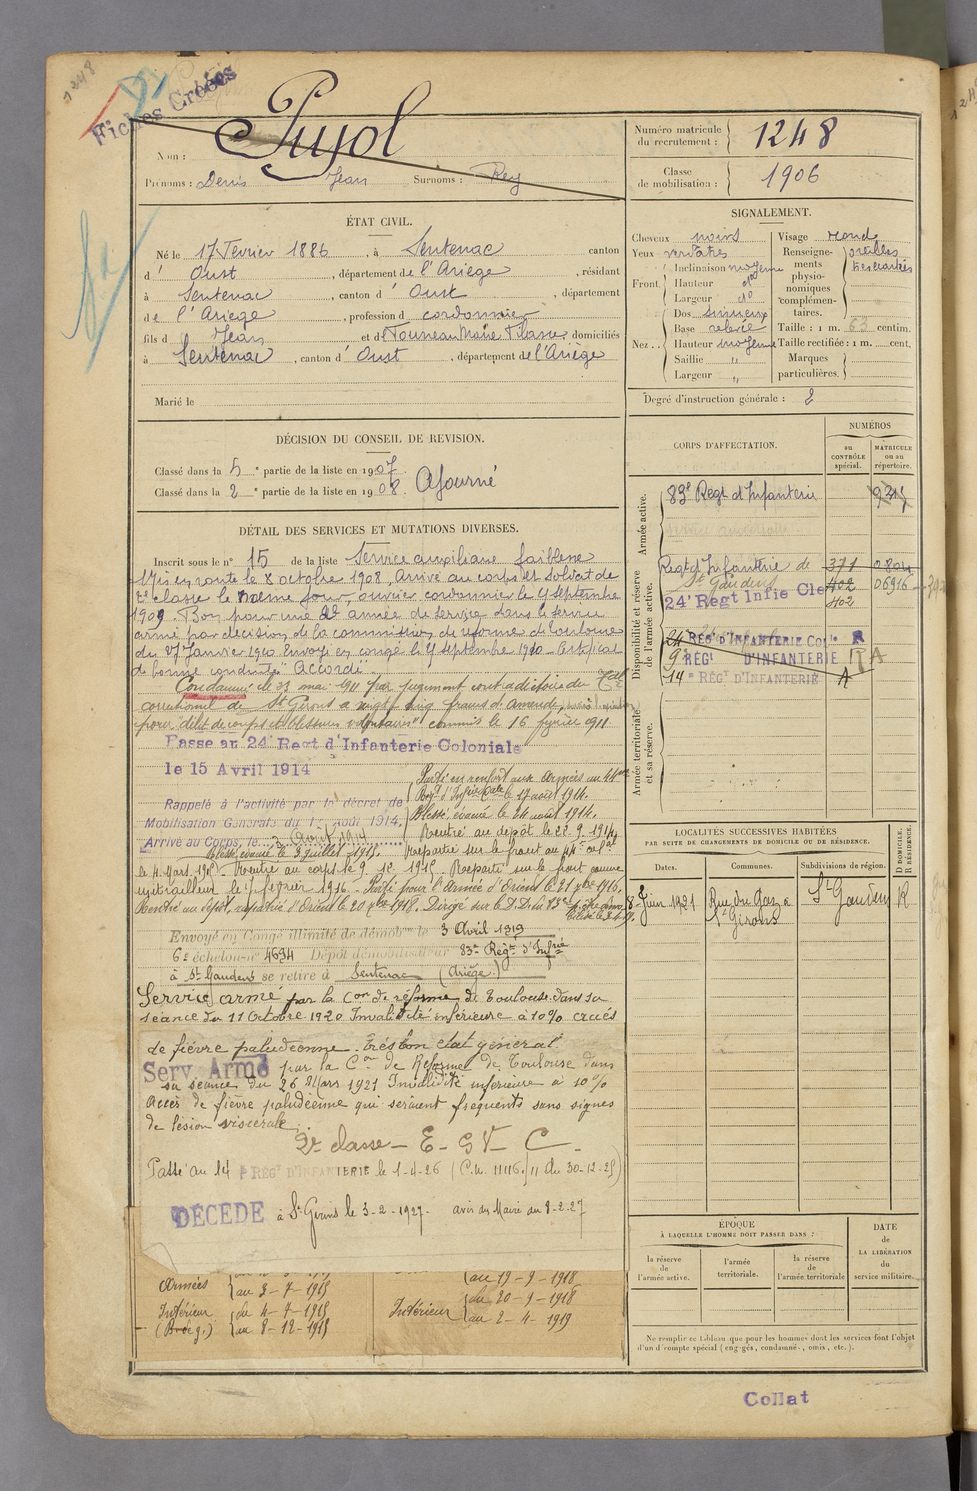 1248
Fiches Créées
Pujol
Nom :
Prénoms : Denis Jean Surnoms : Rey
Numéro matricule du recrutement : 1248
Classe de mobilisation : 1906
ÉTAT CIVIL.
Né le 17 Fevrier 1886, à Sentenac canton
d' Oust, département de l'Ariège, résidant
à Sentenac, canton d' Oust, département
de l'Ariege, profession d cordonnier
fils d Jean et d Marie domiciliés
à Sentenac, canton d' Oust, département de l'Ariège
Marié le
SIGNALEMENT.
Cheveux noirs
Yeux verdatres
Front. Inclinaison moyenne
Hauteur do
Largeur do
Nez.. Dos sinueux
Base relevée
Hauteur moyenne
Saillie "
Largeur "
Visage rond
Renseignements physionomiques complémentaires. oreilles tres ecartées
Taille : 1 m. 63 centim.
Taille rectifiée : 1 m. cent.
Marques particulières.
Degré d'instruction générale : 2
DÉCISION DU CONSEIL DE REVISION.
Classé dans la 5 e partie de la liste en 1907.
Classé dans la 2 e partie de la liste en 1908. Ajourné
DÉTAIL DES SERVICES ET MUTATIONS DIVERSES.
Inscrit sous le n° 15 de la liste Service auxiliaire faiblesse
Mis en route le 8 octobre 1908, Arrivé au corps et soldat de
2e classe le meme jour, ouvrier cordonnier le 4 Septembre
1909. Bon pour une 2e année de service dans le service
armé par décision de la commission de réforme de Toulouse
du 27 Janvier 1910 Envoyé en congé le Septembre 1910 - Certificat
de bonne conduite "Accordé"
Condamné le 23 mai 911 par jugement contradictoire du Tal
correctionnel de St Girons a vingt cinq francs d'amende
pour délit de coups et blessures volontaires commis le 16 fevrier 911.
Passé au 24e Regt d'Infanterie Coloniale
le 15 Avril 1914
Rappelé à l'activité par le décret de
Mobilisation Générale du 1er Août 1914.
Arrivé au Corps, le 3 Août 1914
Parti en renfort aux Armées au 44eme
Regt d'Infie Cale le 17 août 1914.
Blessé, évacué le 24 août 1914.
Rentré au dépôt le 22.9.1914
Repartie sur le front au 44e col
le 4 Mars 1915 Blessé, évacué le 3 juillet 1915.
Rentré au corps le 9.12.1915. Reparti sur le front comme
mitrailleur le fevrier 1916. Parti pour l'Armée d'Orient le 21 9bre 1916.
Rentré au dépôt, rapatrié d'Orient le 20 1918. Dirigé sur le D.D. du 83e
Envoyé en Congé illimité de démob on le 3 Avril 1919
6e échelon-n° 4634 Dépôt démobilisateur 83e Regt d'Infie
à St Gaudens se retire à Sentenac (Ariège)
Service armé par la Con de réforme de Toulouse dans sa
séance du 11 Octobre 1920 Invalidité inférieure à 10% accès
de fièvre paludéenne. très bon état général.
Serv. Armé par la Con de Réforme de Toulouse dans
sa séance du 26 Mars 1921 Invalidité inférieure à 10%
Accès de fièvre paludéenne qui seraient fréquents sans signes
de lésion viscérale.
2e classe - E - S V C -
Passé au 14 e RÉGt D'INFANTERIE le 1-4-26 (C.M. 11116./11 du 30-12-25)
DÉCEDÉ à St Girons le 3-2-1927- avis du Maire du 8-2-27
Armées au 3-7-1915
Intérieur (du 4-7-1915
(Bl de g.) (au 8-12-1915
(au 19-9-1918
Intérieur (du 20-9-1918
(au 2-4-1919
CORPS D'AFFECTATION.
NUMÉROS
au CONTRÔLE spécial.
MATRICULE ou au répertoire.
Armée active.
83e Regt d'Infanterie
Disponibilité et réserve de l'armée active.
Regt d'Infanterie de St Gaudens
371 0804
402 06916
402
24e Regt Infie Cle
24e RÉGt D'INFANTERIE Cole R
9e RÉGt D'INFANTERIE
14e RÉGt D'INFANTERIE A
Armée territoriale et sa réserve.
LOCALITÉS SUCCESSIVES HABITÉES
PAR SUITE DE CHANGEMENTS DE DOMICILE OU DE RÉSIDENCE.
Dates.
Communes.
Subdivisions de région.
D DOMICILE. R RÉSIDENCE.
8 Juin 1921 Rue du Gaz St Girons St Gaudens R
ÉPOQUE
À LAQUELLE L'HOMME DOIT PASSER DANS :
la réserve de l'armée active.
l'armée territoriale.
la réserve de l'armée territoriale
DATE de LA LIBÉRATION du service militaire.
Ne remplir ce tableau que pour les hommes dont les services font l'objet
d'un décompte spécial (engagés, condamnés, omis, etc.).
Collat